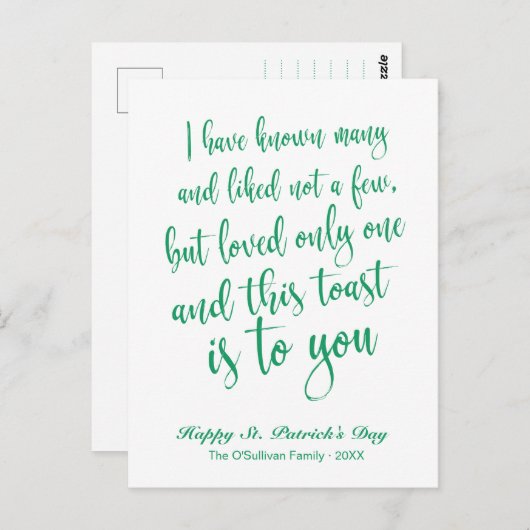 I have known many
and liked not a few,
but loved only one
and this toast
is to you
Happy St. Patrick's Day
The O'Sullivan Family · 20XX